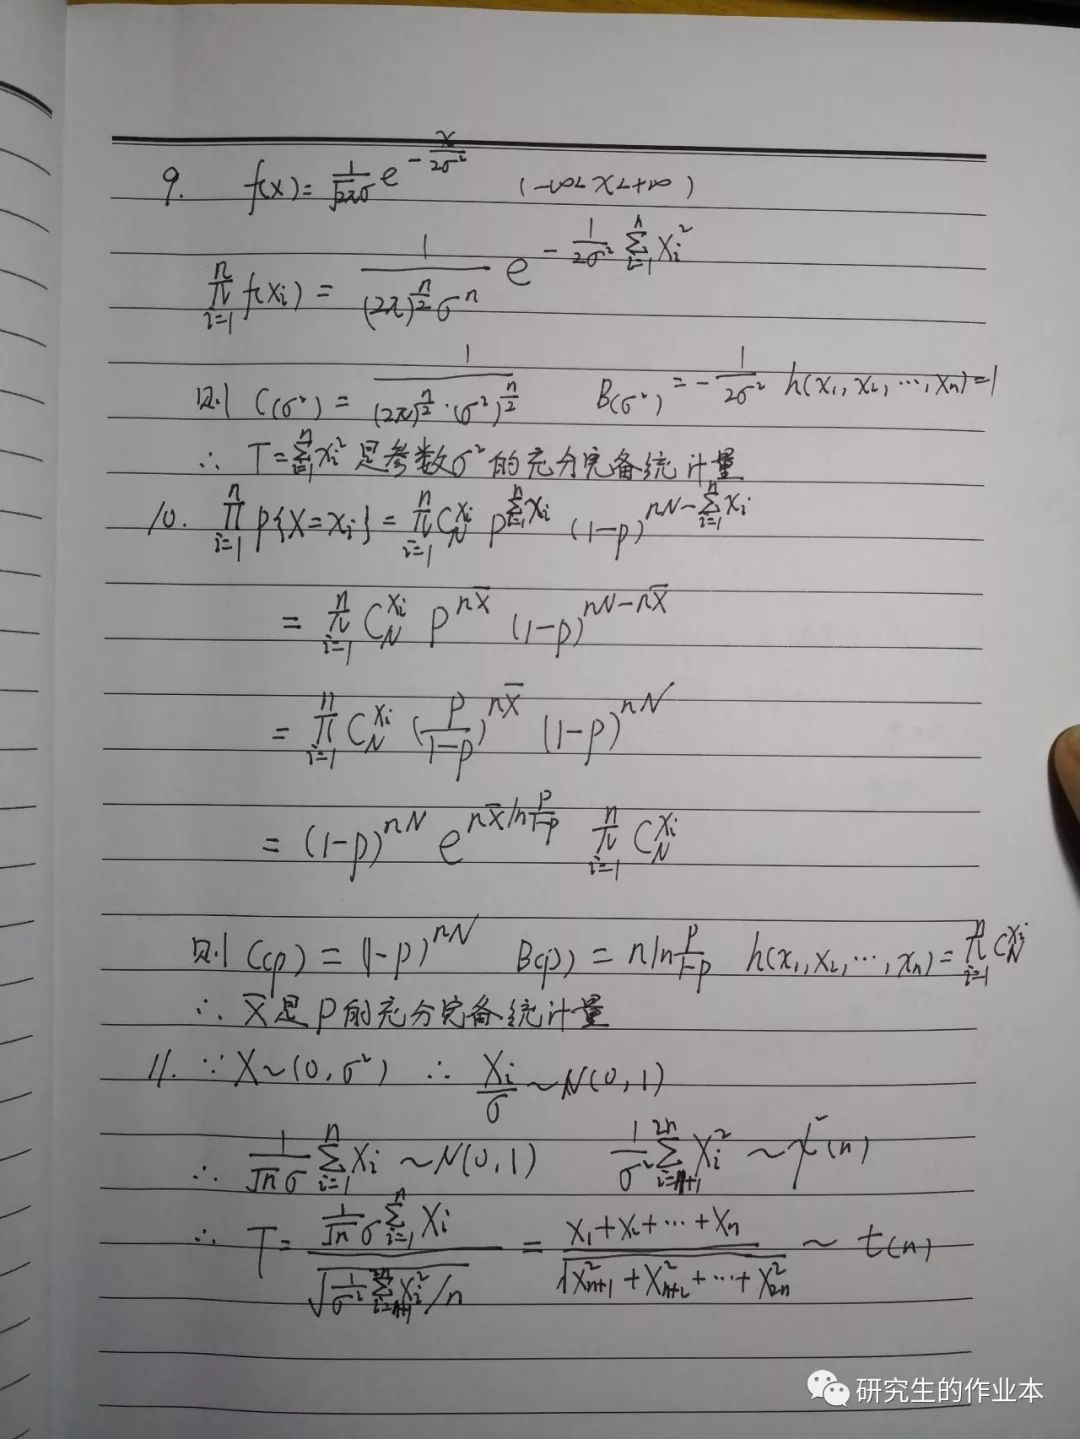 9. f(x) = \frac{1}{\sqrt{2π}σ} e^{-\frac{x}{2σ^2}} (-∞<x<+∞)
\prod_{i=1}^{n} f(x_i) = \frac{1}{(2π)^{\frac{n}{2}} σ^n} e^{-\frac{1}{2σ^2} \sum_{i=1}^{n} X_i^2}
则 C(σ^2) = \frac{1}{(2π)^{\frac{n}{2}} \cdot (σ^2)^{\frac{n}{2}}} B(σ^2) = -\frac{1}{2σ^2} h(x_1, x_2, ⋯, x_n) = 1
∴ T = \sum_{i=1}^{n} x_i^2 是参数σ^2的充分完备统计量
10. \prod_{i=1}^{n} P\{X = x_i\} = \prod_{i=1}^{n} C_N^{X_i} P^{\sum_{i=1}^{n} X_i} (1-p)^{nN - \sum_{i=1}^{n} X_i}
= \prod_{i=1}^{n} C_N^{X_i} P^{n\bar{X}} (1-p)^{nN - n\bar{X}}
= \prod_{i=1}^{n} C_N^{X_i} (\frac{P}{1-p})^{n\bar{X}} (1-p)^{nN}
= (1-p)^{nN} e^{n\bar{X} ln\frac{p}{1-p}} \prod_{i=1}^{n} C_N^{X_i}
则 C(p) = (1-p)^{nN} B(p) = n ln\frac{p}{1-p} h(x_1, x_2, ⋯, x_n) = \prod_{i=1}^{n} C_N^{X_i}
∴ \bar{X} 是P的充分完备统计量
11. ∵ X ~ (0, σ^2) ∴ \frac{X_i}{σ} ~ N(0, 1)
∴ \frac{1}{\sqrt{n}σ} \sum_{i=1}^{n} X_i ~ N(0, 1) \frac{1}{σ^2} \sum_{i=n+1}^{2n} X_i^2 ~ χ^2(n)
∴ T = \frac{\frac{1}{\sqrt{n}}σ \sum_{i=1}^{n} X_i}{\sqrt{\frac{1}{σ^2} \sum_{i=n+1}^{2n} X_i^2 / n}} = \frac{X_1 + X_2 + ⋯ + X_n}{\sqrt{X_{n+1}^2 + X_{n+2}^2 + ⋯ + X_{2n}^2}} ~ t(n)
研究生的作业本